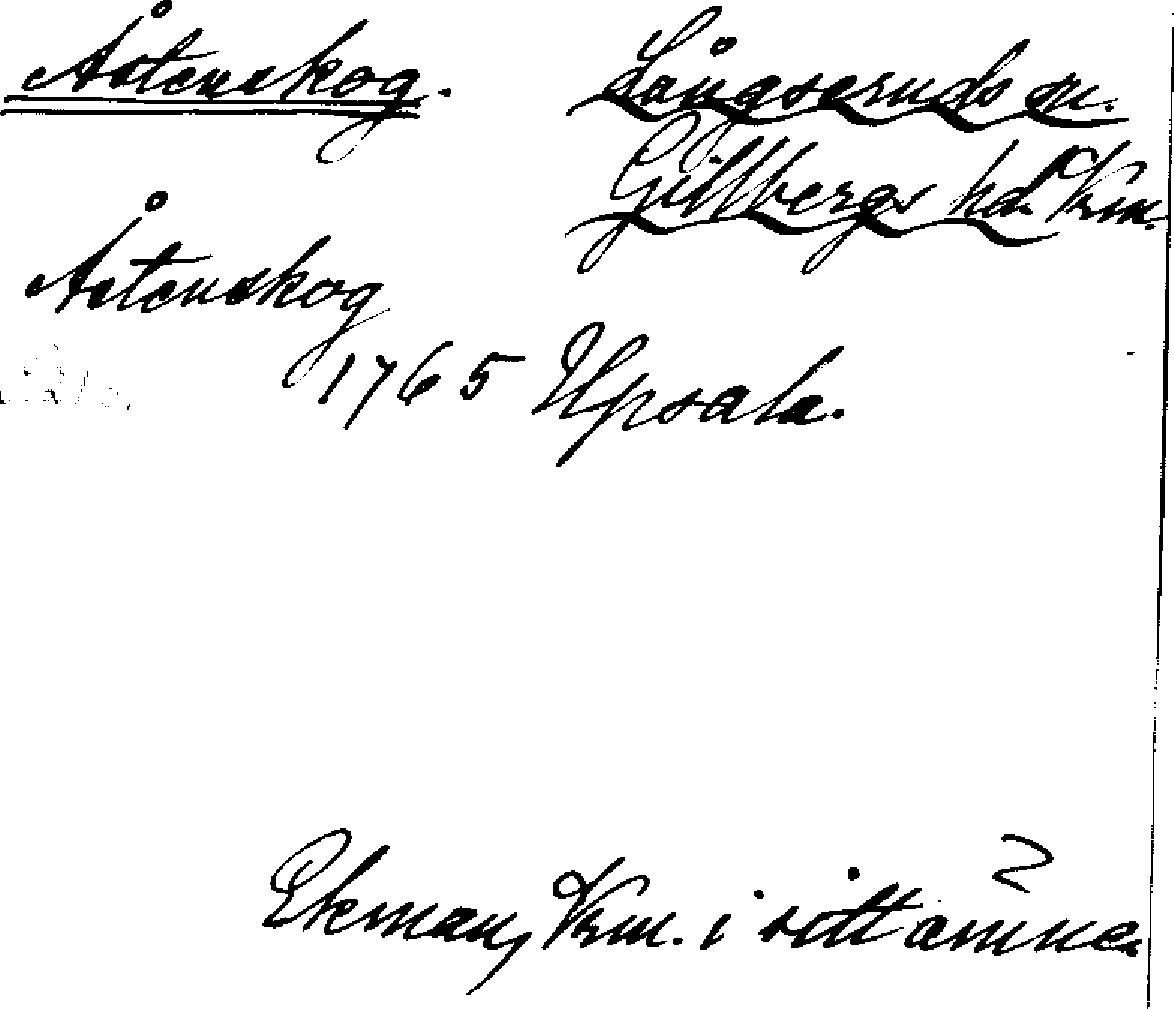 Åstenskog.
Långseruds sn.
Gillbergs hd. Vrm.
Åstenskog
1765 Upsala.
Ekman, Vrm. i sitt ämne